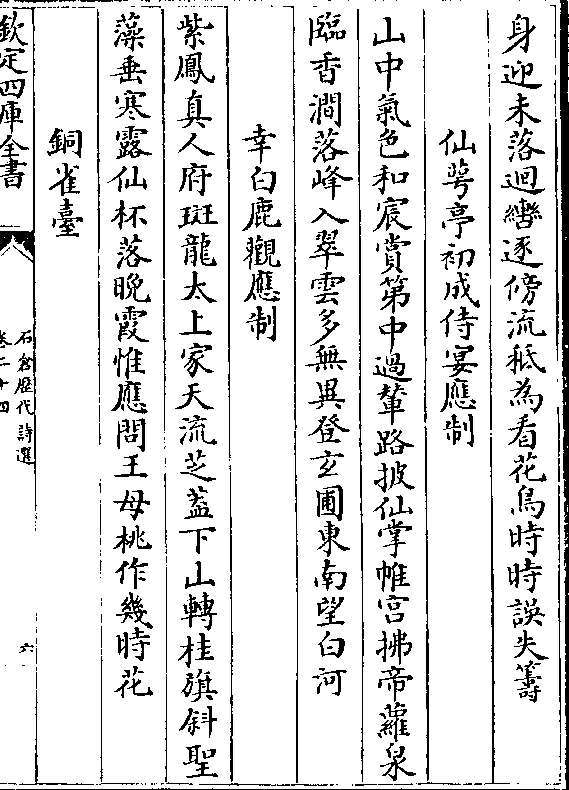 身迎未落迴轡逐傍流秪為看花鳥時時誤失籌
仙萼亭初成侍宴應制
山中氣色和宸賞第中過輦路披仙掌帷宮拂帝蘿泉
臨香澗落峰入翠雲多無異登玄圃東南望白河
幸白鹿觀應制
紫鳳真人府斑龍太上家天流芝葢下山轉桂旗斜聖
藻垂寒露仙杯落晚霞惟應問王母桃作幾時花
銅雀臺
欽定四庫全書
石倉歷代詩選
卷二十四
六